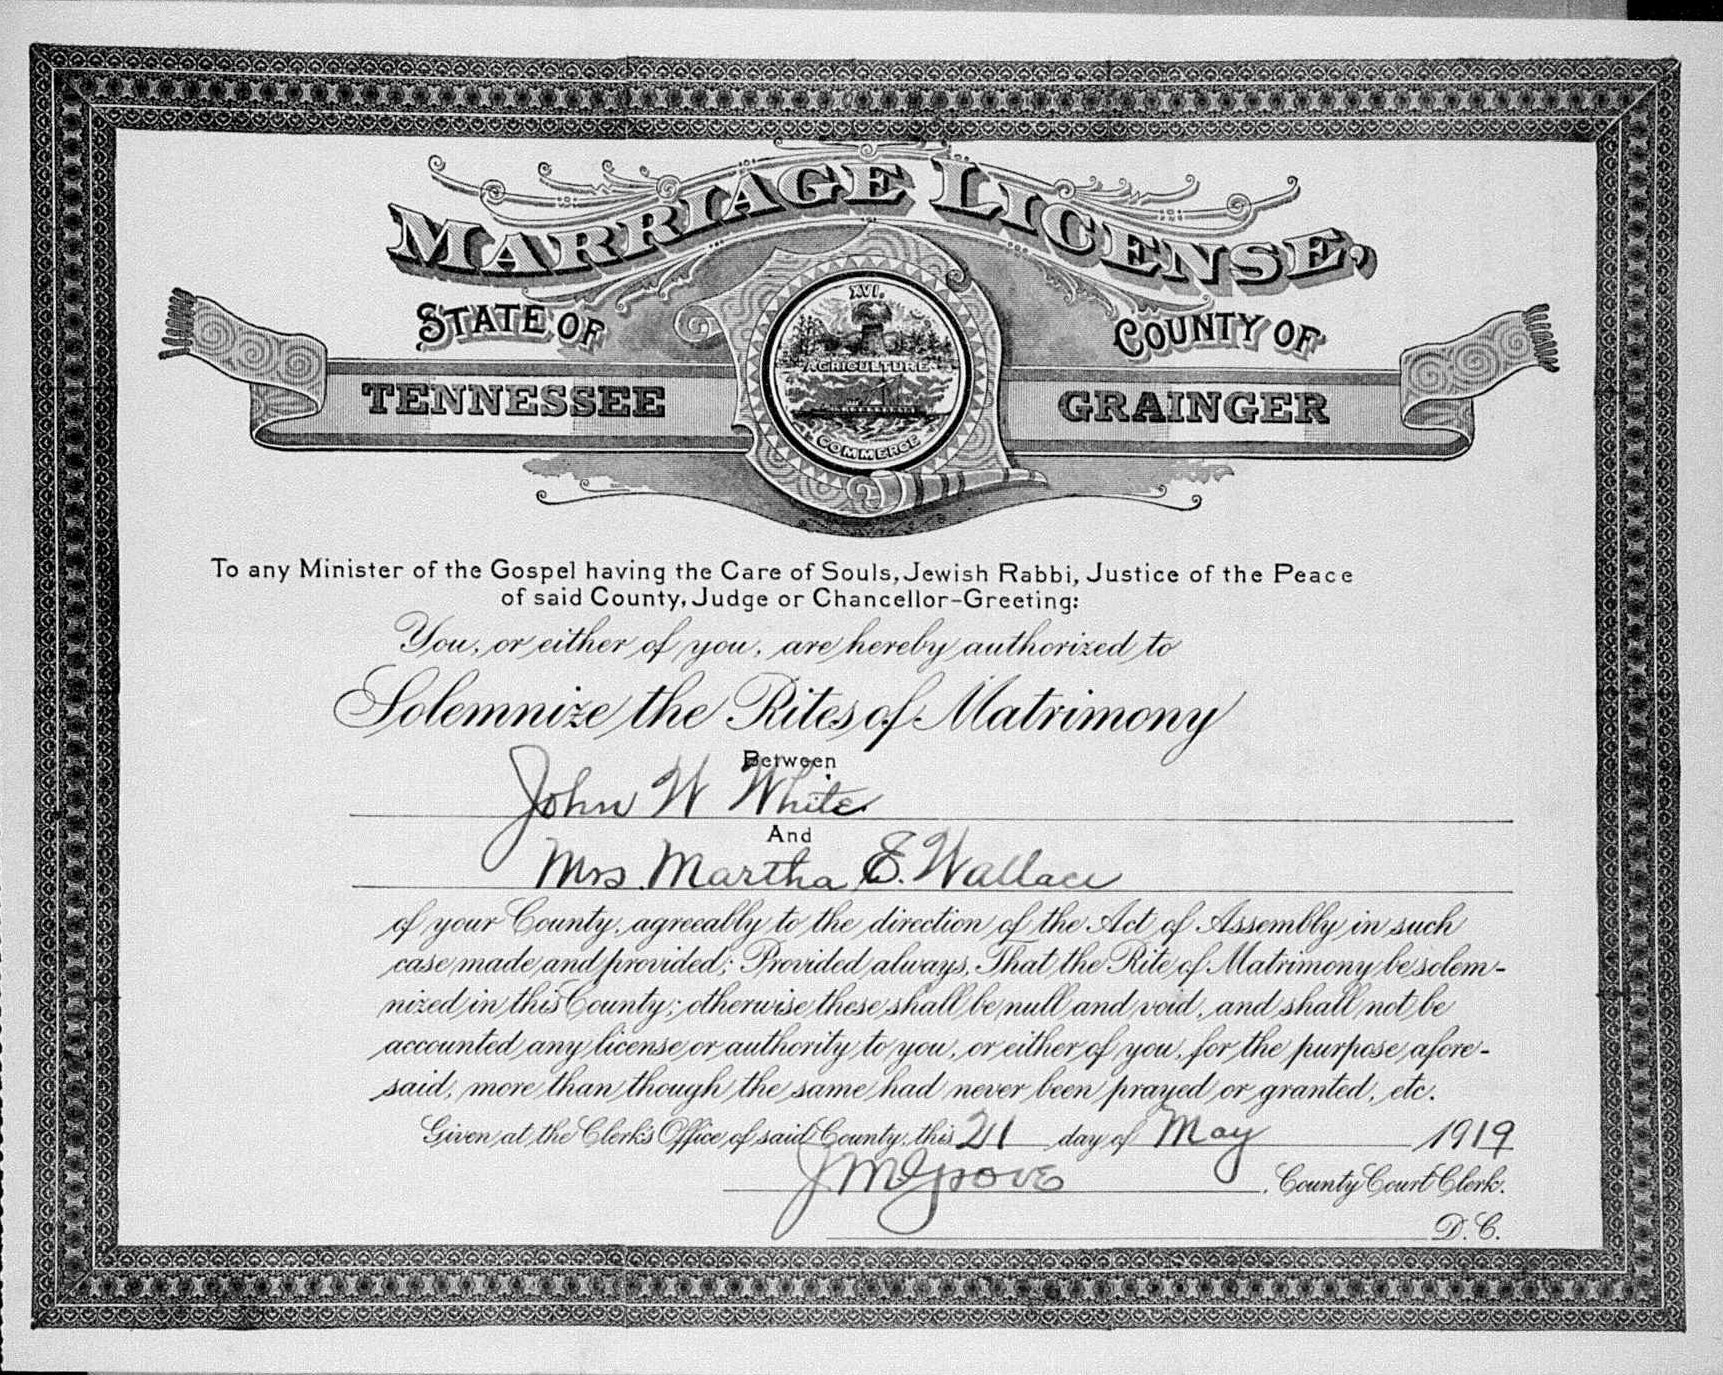 MARRIAGE LICENSE,
STATE OF
COUNTY OF
TENNESSEE
GRAINGER
XVI.
AGRICULTURE
COMMERCE
To any Minister of the Gospel having the Care of Souls, Jewish Rabbi, Justice of the Peace
of said County, Judge or Chancellor-Greeting:
You, or either of you, are hereby authorized to
Solemnize the Rites of Matrimony
Between
John W White
And
Mrs. Martha E. Wallace
of your County, agreeably to the direction of the Act of Assembly in such
case made and provided; Provided always, That the Rite of Matrimony be solem-
nized in this County; otherwise these shall be null and void, and shall not be
accounted any license or authority to you, or either of you, for the purpose afore-
said, more than though the same had never been prayed or granted, etc.
Given at the Clerk's Office of said County, this 21 day of May 1919
J M Grove, County Court Clerk.
D. C.